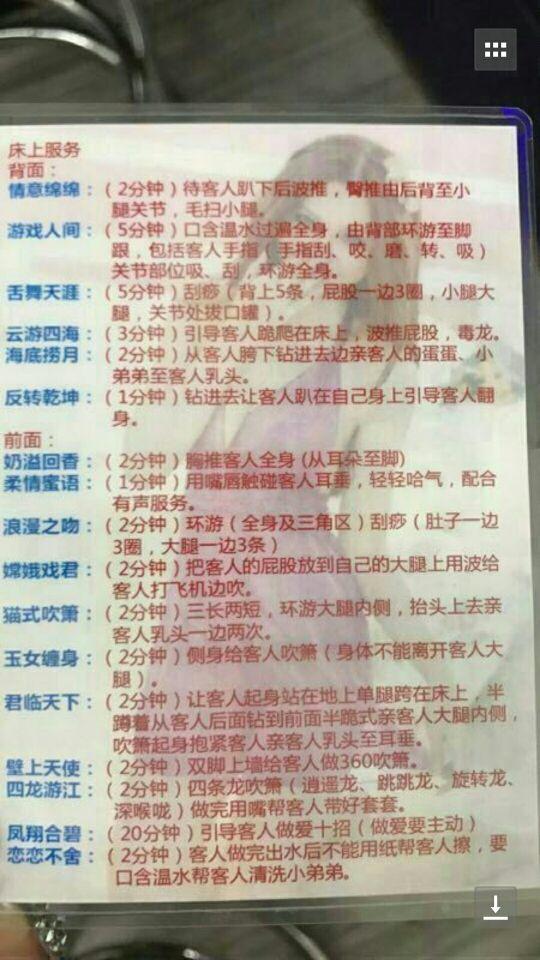 床上服务
背面：
情意绵绵：（2分钟）待客人趴下后波推，臀推由后背至小
腿关节，毛扫小腿。
游戏人间：（5分钟）口含温水过遍全身，由背部环游至脚
跟，包括客人手指（手指刮、咬、磨、转、吸）
关节部位吸、刮，环游全身。
舌舞天涯：（5分钟）刮痧（背上5条，屁股一边3圈，小腿大
腿，关节处拔口罐）。
云游四海：（3分钟）引导客人跪爬在床上，波推屁股，毒龙。
海底捞月：（2分钟）从客人胯下钻进去边亲客人的蛋蛋、小
弟弟至客人乳头。
反转乾坤：（1分钟）钻进去让客人趴在自己身上引导客人翻
身。
前面：
奶溢回香：（2分钟）胸推客人全身(从耳朵至脚)
柔情蜜语：（1分钟）用嘴唇触碰客人耳垂，轻轻哈气，配合
有声服务。
浪漫之吻：（2分钟）环游（全身及三角区）刮痧（肚子一边
3圈，大腿一边3条）
嫦娥戏君：（2分钟）把客人的屁股放到自己的大腿上用波给
客人打飞机边吹。
猫式吹箫：（2分钟）三长两短，环游大腿内侧，抬头上去亲
客人乳头一边两次。
玉女缠身：（2分钟）侧身给客人吹箫（身体不能离开客人大
腿）。
君临天下：（2分钟）让客人起身站在地上单腿跨在床上，半
蹲着从客人后面钻到前面半跪式亲客人大腿内侧，
吹箫起身抱紧客人亲客人乳头至耳垂。
壁上天使：（2分钟）双脚上墙给客人做360吹箫。
四龙游江：（2分钟）四条龙吹箫（逍遥龙、跳跳龙、旋转龙、
深喉咙）做完用嘴帮客人带好套套。
凤翔合碧：（20分钟）引导客人做爱十招（做爱要主动）
恋恋不舍：（2分钟）客人做完出水后不能用纸帮客人擦，要
口含温水帮客人清洗小弟弟。